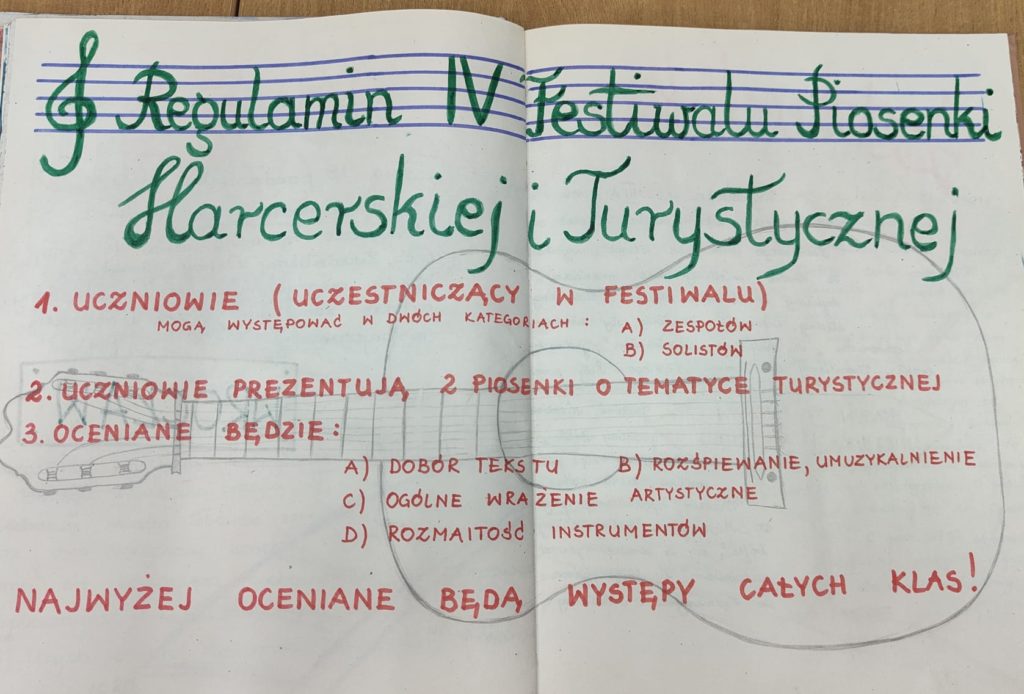 Regulamin IV Festiwalu Piosenki
Harcerskiej i Turystycznej
1. UCZNIOWIE (UCZESTNICZĄCY W FESTIWALU)
MOGĄ WYSTĘPOWAĆ W DWÓCH KATEGORIACH: A) ZESPOŁÓW
B) SOLISTÓW
2. UCZNIOWIE PREZENTUJĄ 2 PIOSENKI O TEMATYCE TURYSTYCZNEJ
3. OCENIANE BĘDZIE:
A) DOBÓR TEKSTU B) ROZŚPIEWANIE, UMUZYKALNIENIE
C) OGÓLNE WRAŻENIE ARTYSTYCZNE
D) ROZMAITOŚĆ INSTRUMENTÓW
NAJWYŻEJ OCENIANE BĘDĄ WYSTĘPY CAŁYCH KLAS!